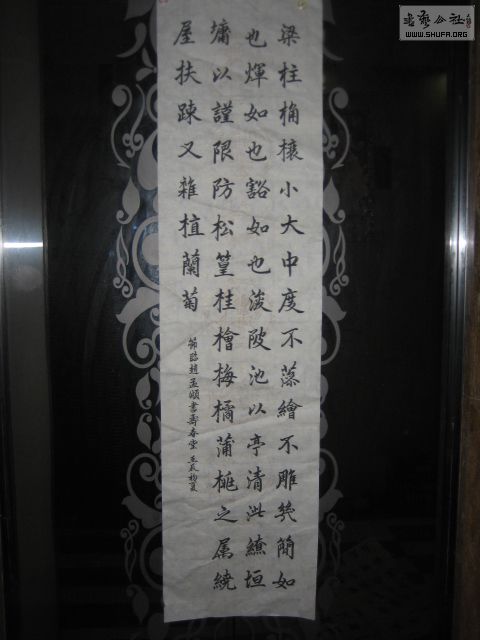 梁柱桷榱小大中度不藻繪不雕幾簡如
也煇如也豁如也浚陂池以亭清泚繚垣
墉以謹限防松篁桂檜梅橘蒲桃之属繞
屋扶踈又雜植蘭菊
節臨趙孟頫書壽春堂 壬辰初夏
書藝公社
WWW.SHUFA.ORG